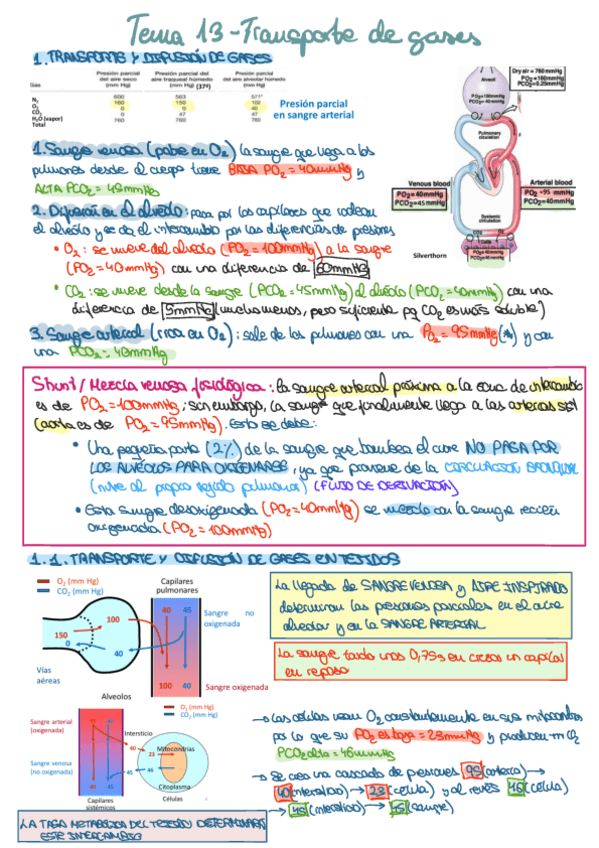 Tema 13-Transporte de gases
1. TRANSPORTE Y DIFUSIÓN DE GASES
Gas
Presión parcial del aire seco (mm Hg)
Presión parcial del aire traqueal húmedo (mm Hg) (37º)
Presión parcial del aire alveolar húmedo (mm Hg)
N₂ 600 563 571*
O₂ 160 150 102
CO₂ 0 0 40
H₂O (vapor) 0 47 47
Total 760 760 760
Presión parcial
en sangre arterial
Alveoli
Dry air = 760 mmHg
PO₂=160mmHg
PCO₂=0.25mmHg
PO₂=100mmHg
PCO₂=40mmHg
Pulmonary
circulation
Venous blood
PO₂= 40mmHg
PCO₂=45mmHg
Arterial blood
PO₂ =95 mmHg
PCO₂=40mmHg
Systemic
circulation
CO₂ O₂
Cells
Silverthorn
1. Sangre venosa (pobre en O₂) la sangre que llega a los
pulmones desde el cuerpo tiene BAJA PO₂ = 40mmHg y
ALTA PCO₂ = 45mmHg
2. Difusión en el alvéolo: pasa por los capilares que rodean
el alvéolo y se da el intercambio por las diferencias de presiones
• O₂: se mueve del alvéolo (PO₂ = 100mmHg) a la sangre
(PO₂ = 40mmHg) con una diferencia de 60mmHg
• CO₂: se mueve desde la sangre (PCO₂ = 45mmHg) al alvéolo (PCO₂ = 40mmHg) con una
diferencia de 5mmHg (mucho menos, pero suficiente pq CO₂ es más soluble)
3. Sangre arterial (rica en O₂): sale de los pulmones con una PO₂ = 95mmHg y con
una PCO₂ = 40mmHg
Shunt / Mezcla venosa fisiológica: la sangre arterial próxima a la zona de intercambio
es de PO₂ = 100mmHg; sin embargo, la sangre que finalmente llega a las arterias sist
(aorta es de PO₂ = 95mmHg). Esto se debe:
• Una pequeña parte (2%) de la sangre que bombea el core NO PASA POR
LOS ALVÉOLOS PARA OXIGENARSE, ya que proviene de la CIRCULACIÓN BRONQUIAL
(nutre al propio tejido pulmonar) (FLUJO DE DERIVACIÓN)
• Esta sangre desoxigenada (PO₂ = 40mmHg) se mezcla con la sangre recién
oxigenada (PO₂ = 100mmHg)
1. 1. TRANSPORTE Y DIFUSIÓN DE GASES EN TEJIDOS
O₂ (mm Hg)
CO₂ (mm Hg)
Capilares
pulmonares
40 45
Sangre no
oxigenada
100
150
0
40
Vías
aéreas
100 40
Sangre oxigenada
Alveolos
La llegada de SANGRE VENOSA y AIRE INSPIRADO
determinan las presiones parciales en el aire
alveolar y en la SANGRE ARTERIAL
La sangre tarda unos 0,75s en cruzar un capilar
en reposo
O₂ (mm Hg)
CO₂ (mm Hg)
Sangre arterial
(oxigenada)
Intersticio
40
23
Mitocondrias
Sangre venosa
(no oxigenada)
45
46
Citoplasma
Capilares
sistémicos
Células
→ Las células usan O₂ constantemente en sus mitocondrias
por lo que su PO₂ es baja = 23mmHg y producen CO₂
PCO₂ alta = 46mmHg
→ Se crea una cascada de presiones 95 (arteria) →
40 (intersticio) → 23 (célula) y al revés 46 (célula)
→ 45 (intersticio) → 45 (sangre)
LA TASA METABÓLICA DEL TEJIDO DETERMINARÁ
ESTE INTERCAMBIO